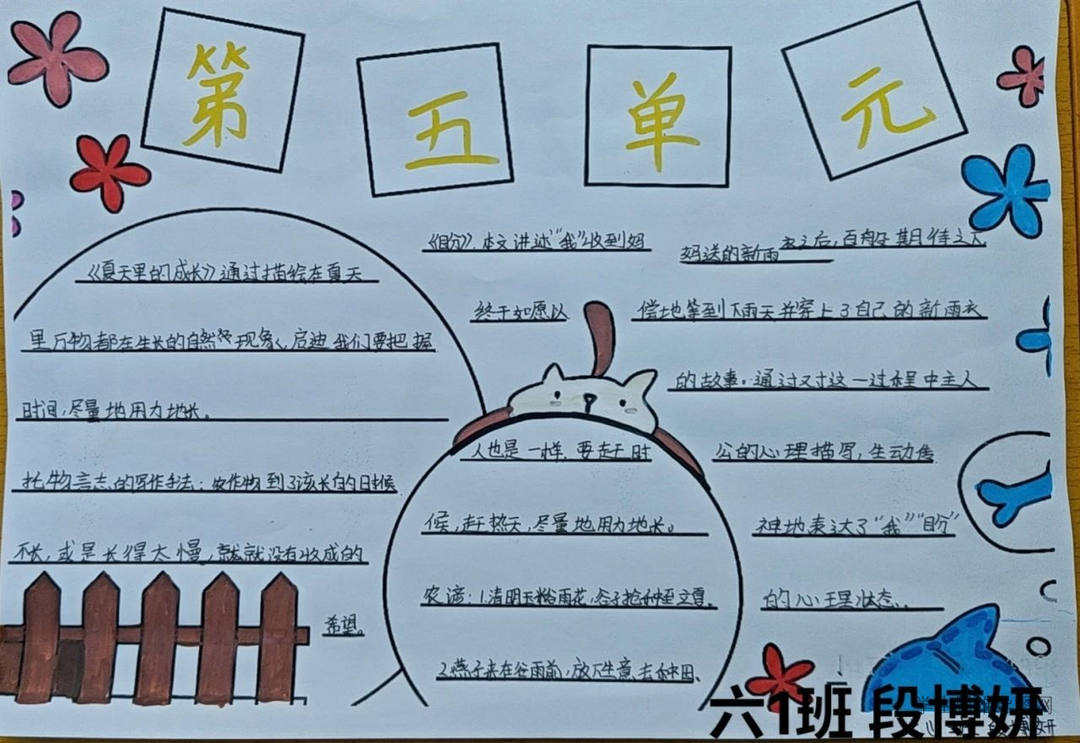 第五单元
《夏天里的成长》通过描绘在夏天
里万物都在生长的自然现象，启迪我们要把握
时间，尽量地用力地长。
托物言志的写作手法：农作物到了该长的时候
不长，或是长得太慢，就就没有收成的
希望。
人也是一样，要赶时
候，赶热天，尽量地用力地长。
农谚：1.清明玉谷雨花，谷子抢种至立夏。
2.燕子来在谷雨前，放下生意去种田。
《盼》本文讲述“我”收到妈
妈送的新雨衣之后，百般期待之下
终于如愿以
偿地等到下雨天并穿上了自己的新雨衣
的故事。通过对这一过程中主人
公的心理描写，生动传
神地表达了“我”“盼”
的心理状态。
六1班 段博妍